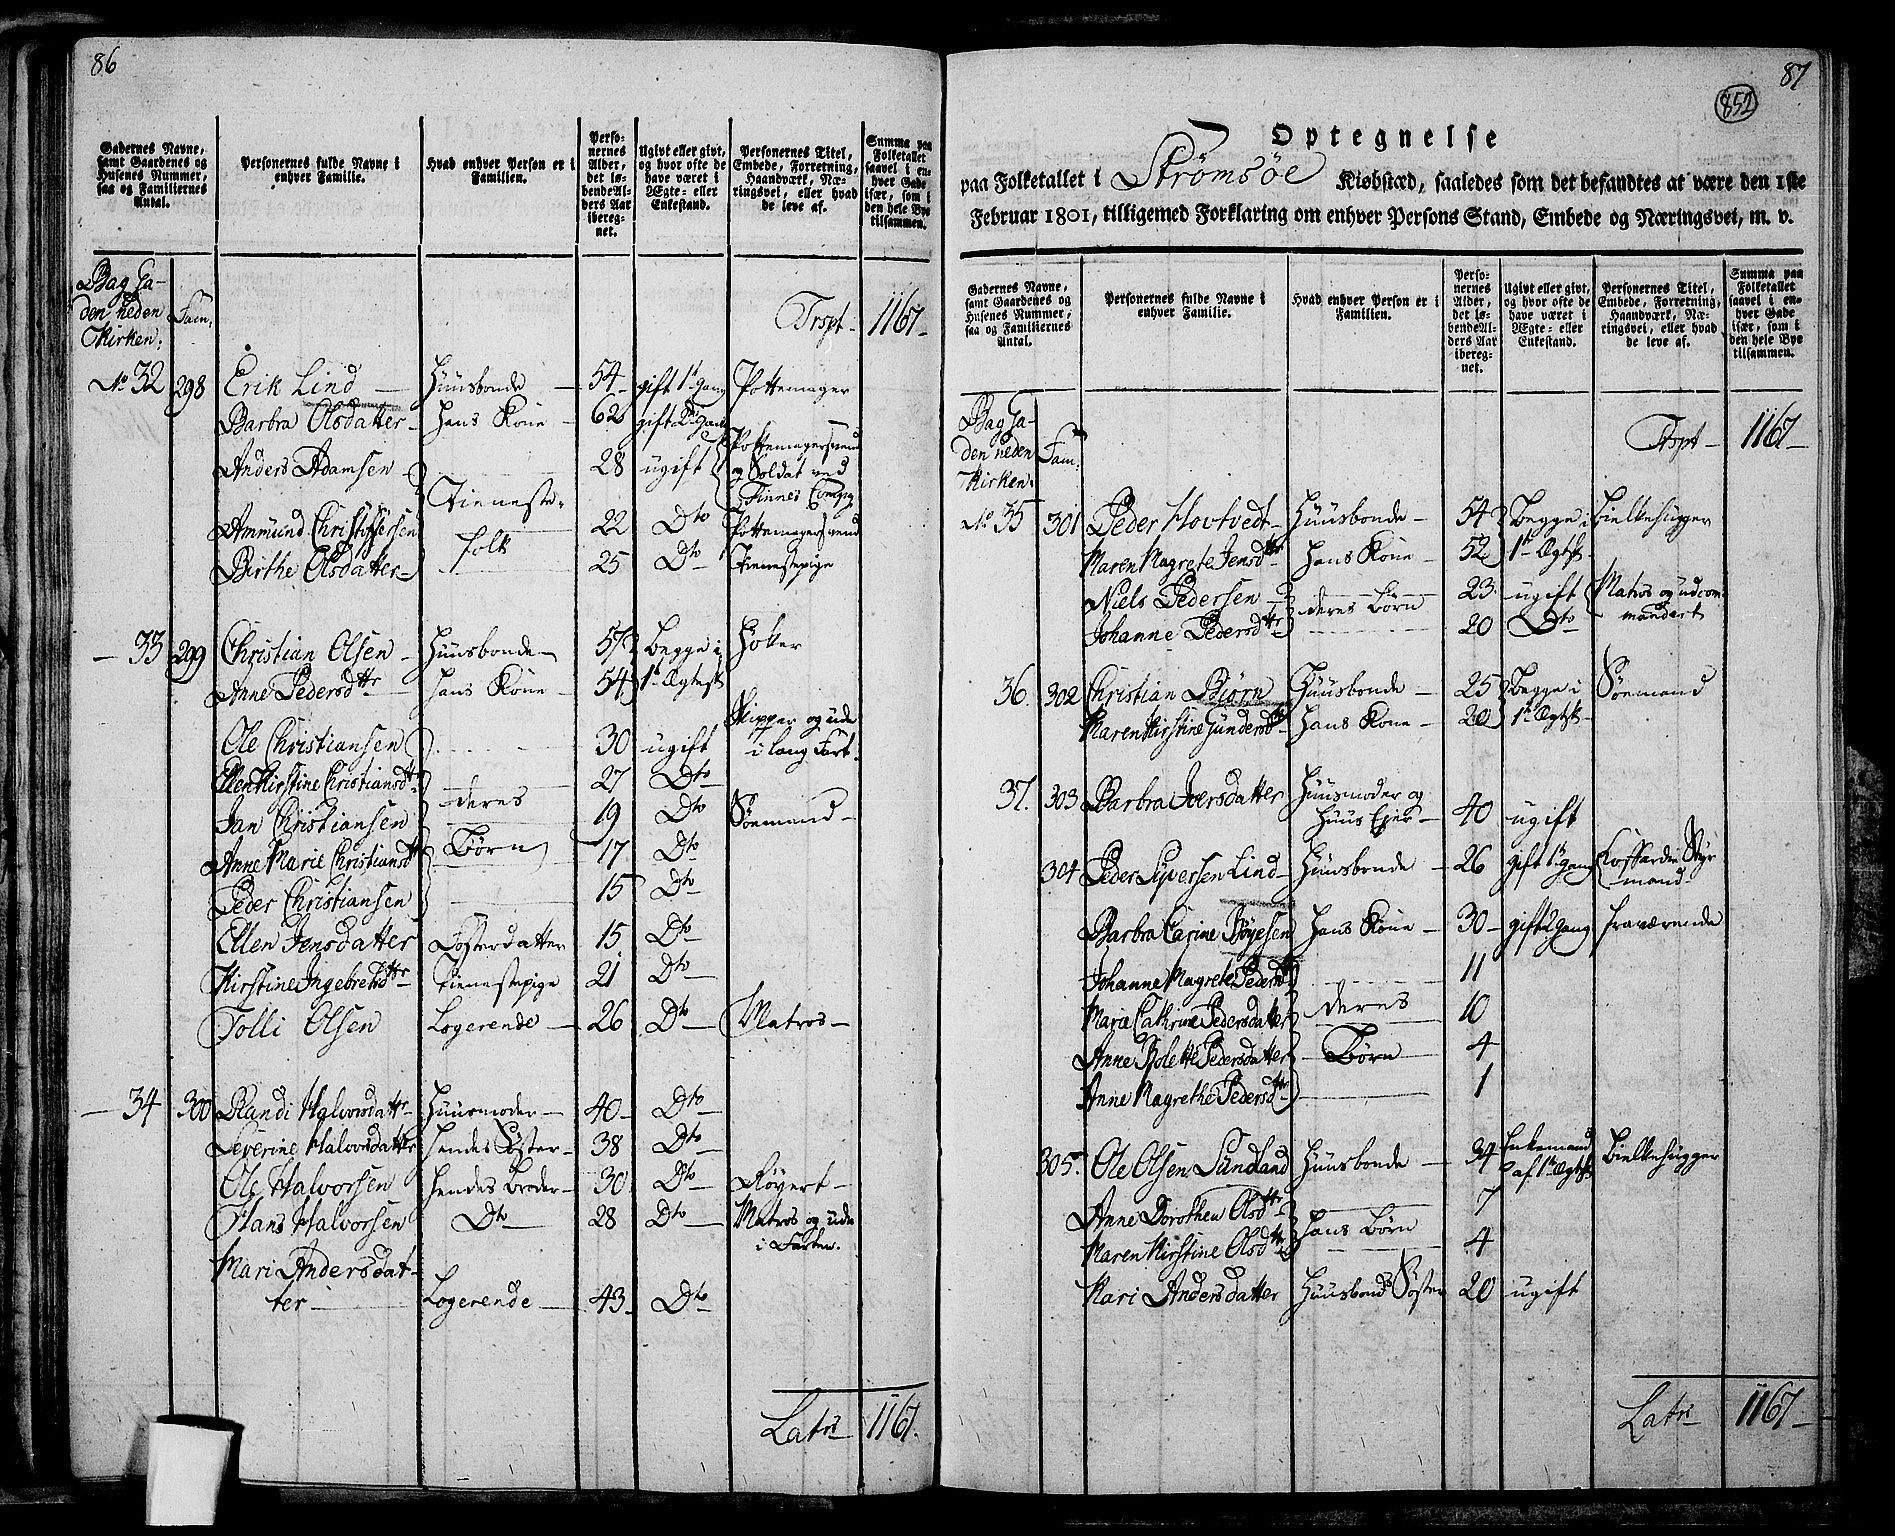 86
Gadernes Navne, samt Gaardenes og Husenes Nummer, saa og Familiernes Antal.
Personernes fulde Navne i enhver Familie.
Hvad enhver Person er i Familien.
Personernes Alder, det løbende Alders Aar iberegnet.
Ugivt eller givt, og hvor ofte de have været i Ægte- eller Enkestand.
Personernes Titel, Embede, Forretning, Haandværk, Næringsvei, eller hvad de leve af.
Summa paa Folketallet saavel i enhver Gade især, som i den hele Bye tilsammen.
Bag Ga-
den neden Fam:
Kirken:
Trspt. 1167-
No 32 298 Erik Lind Huusbonde 54 gift 1te Gang Pottemager
Barbra Olsdatter Hans Kone 62 gift 2den Gang
Anders Adamsen 28 ugift Pottemagersvend og Soldat ved Finnes Compg
Tieneste-
Ammund Christophersen 22 Dto Pottemagersvend
folk
Birthe Olsdatter 25 Dto Tienestepige
33 299 Christian Olsen Huusbonde 57 Begge i Høker
Anne Pedersdttr Hans Kone 54 1te Ægtesk
Ole Christiansen 30 ugift Skipper og ude i lang Fart.
Ellen Kirstine Christiansdttr 27 Dto
deres
Jan Christiansen 19 Dto Søemand
Børn
Anne Marie Christiansdttr 17 Dto
Peder Christiansen 15 Dto
Ellen Jensdatter Fosterdatter 15 Dto
Kirstine Ingebretsdttr Tienestepige 21 Dto
Tolli Olsen Logerende 26 Dto Matros
34 300 Randi Halvorsdattr Huusmoder 40 Dto
Severine Halvorsdatter Hendes Søster 38 Dto
Ole Halvorsen Hendes Broder 30 Dto Røgert
Hans Halvorsen Dto 28 Dto Matros og ude i Farten.
Mari Andersdat-
ter Logerende 43 Dto
Latrs 1167.
87
852
Optegnelse
paa Folketallet i Strømsøe Kiøbstæd, saaledes som det befandtes at være den 1ste
Februar 1801, tilligemed Forklaring om enhver Persons Stand, Embede og Næringsvei, m. v.
Gadernes Navne, samt Gaardenes og Husenes Nummer, saa og Familiernes Antal.
Personernes fulde Navne i enhver Familie.
Hvad enhver Person er i Familien.
Personernes Alder, det løbende Alders Aar iberegnet.
Ugivt eller givt, og hvor ofte de have været i Ægte- eller Enkestand.
Personernes Titel, Embede, Forretning, Haandværk, Næringsvei, eller hvad de leve af.
Summa paa Folketallet saavel i enhver Gade især, som i den hele Bye tilsammen.
Bag Ga-
den neden Fam:
Kirken.
Trspt 1167
No 35 301 Peder Hovtvedt Huusbonde 54 Begge i Bielkehugger
Maren Magrete Jensdttr Hans Kone 52 1te Ægtsk
Niels Pedersen 23 ugift Matros og udcom-
deres Børn
Johanne Pedersdttr 20 Dto mandert
36. 302 Christian Biørn Huusbonde 25 Begge i Søemand
Maren Kirstine Gundersdttr Hans Kone 20 1te Ægtsk
37. 303 Barbra Iversdatter Huusmoder og Huus Ejer 40 ugift
304 Peder Syversen Lind Huusbonde 26 gift 1te Gang Coffardie Styrmand
Barbra Carine Bøyesen Hans Kone 30 gift 2 Gang fraværende
Johanne Magrete Pedersdttr 11
Marie Cathrine Pedersdatter deres 10
Anne Bolette Pedersdatter Børn 4
Anne Magrethe Pedersdttr 1
305. Ole Olsen Sundland Huusbonde 34 Enkemand af 1te Ægtsk Bielkehugger
Anne Dorothea Olsdttr 7
Hans Børn
Maren Kirstine Olsdttr 4
Mari Andersdatter Huusbonds Søster 20 ugift
Latrs 1167